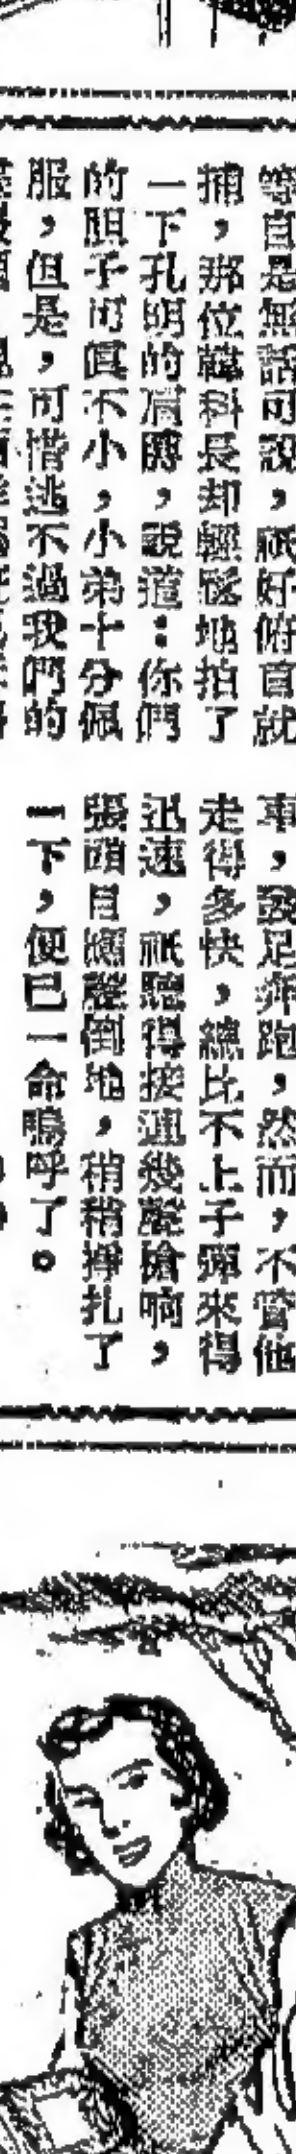 等自是無話可說，祇好俯首就
捕，那位韓科長却輕鬆地拍了
一下孔明的肩膀，說道：你們
的胆子可眞不小，小弟十分佩
服，但是，可惜逃不過我們的
車，發足奔跑，然而，不管他
走得多快，總比不上子彈來得
迅速，祇聽得接連幾聲槍响，
張頭目應聲倒地，稍稍掙扎了
一下，便已一命嗚呼了。